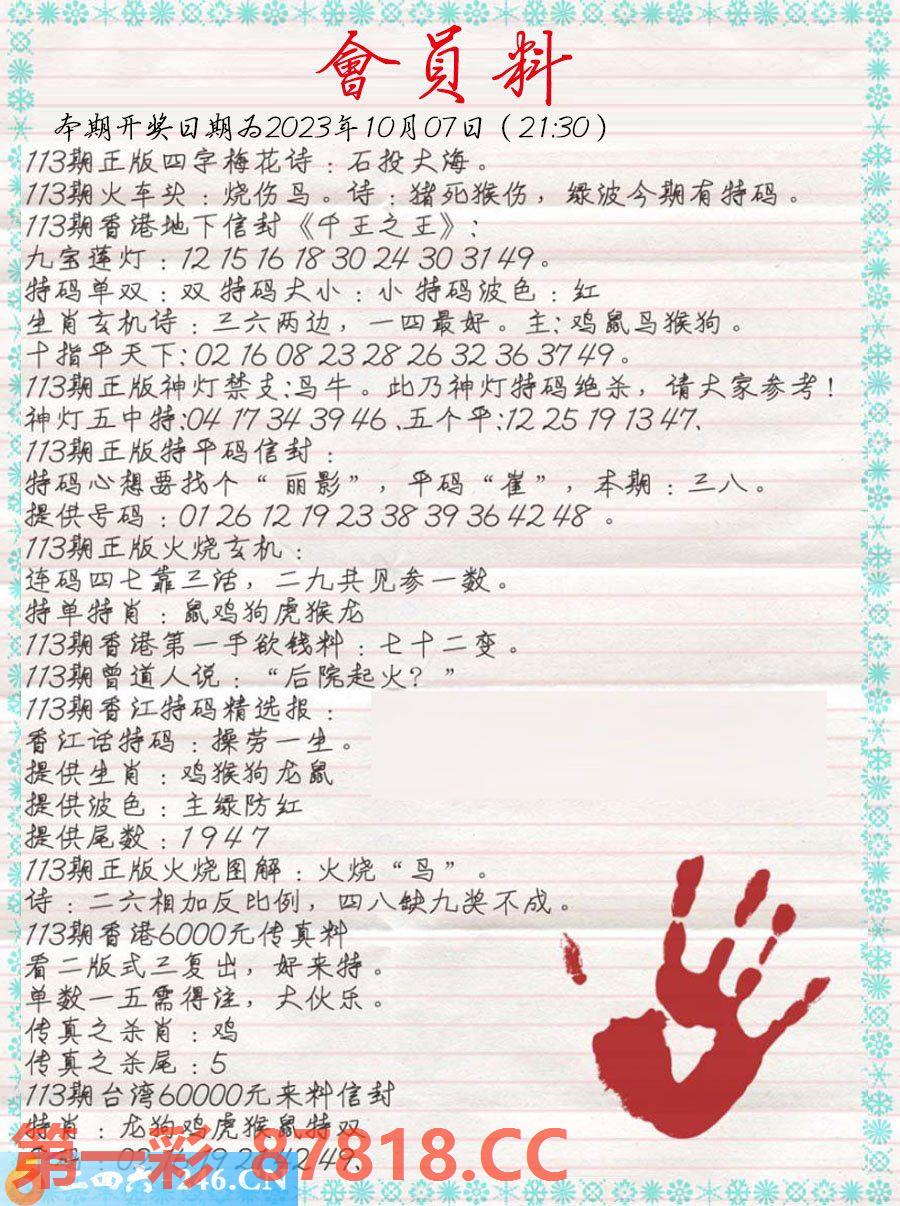 會員料
本期开奖日期为2023年10月07日（21:30）
113期正版四字梅花诗：石投大海。
113期火车头：烧伤鸟。诗：猪死猴伤，绿波今期有特码。
113期香港地下信封《千王之王》：
九宝莲灯：12 15 16 18 30 24 30 31 49。
特码单双：双 特码大小：小 特码波色：红
生肖玄机诗：三六两边，一四最好。主：鸡鼠鸟猴狗。
十指平天下：02 16 08 23 28 26 32 36 37 49。
113期正版神灯禁支：鸟牛。此乃神灯特码绝杀，请大家参考！
神灯五中特：04 17 34 39 46、五个平：12 25 19 13 47、
113期正版特平码信封：
特码心想要找个“丽影”，平码“崔”，本期：三八。
提供号码：01 26 12 19 23 38 39 36 42 48 。
113期正版火烧玄机：
连码四七靠三活，二九共见参一数。
特单特肖：鼠鸡狗虎猴龙
113期香港第一手欲钱料：七十二变。
113期曾道人说：“后院起火？”
113期香江特码精选报：
香江话特码：操劳一生。
提供生肖：鸡猴狗龙鼠
提供波色：主绿防红
提供尾数：1 9 4 7
113期正版火烧图解：火烧“鸟”。
诗：二六相加反比例，四八缺九奖不成。
113期香港6000元传真料
看二版式三复出，好来特。
单数一五需得注，大伙乐。
传真之杀肖：鸡
传真之杀尾：5
113期台湾60000元来料信封
特肖：龙狗鸡虎猴鼠特双
第一彩 87818.CC
二四六 246.CN